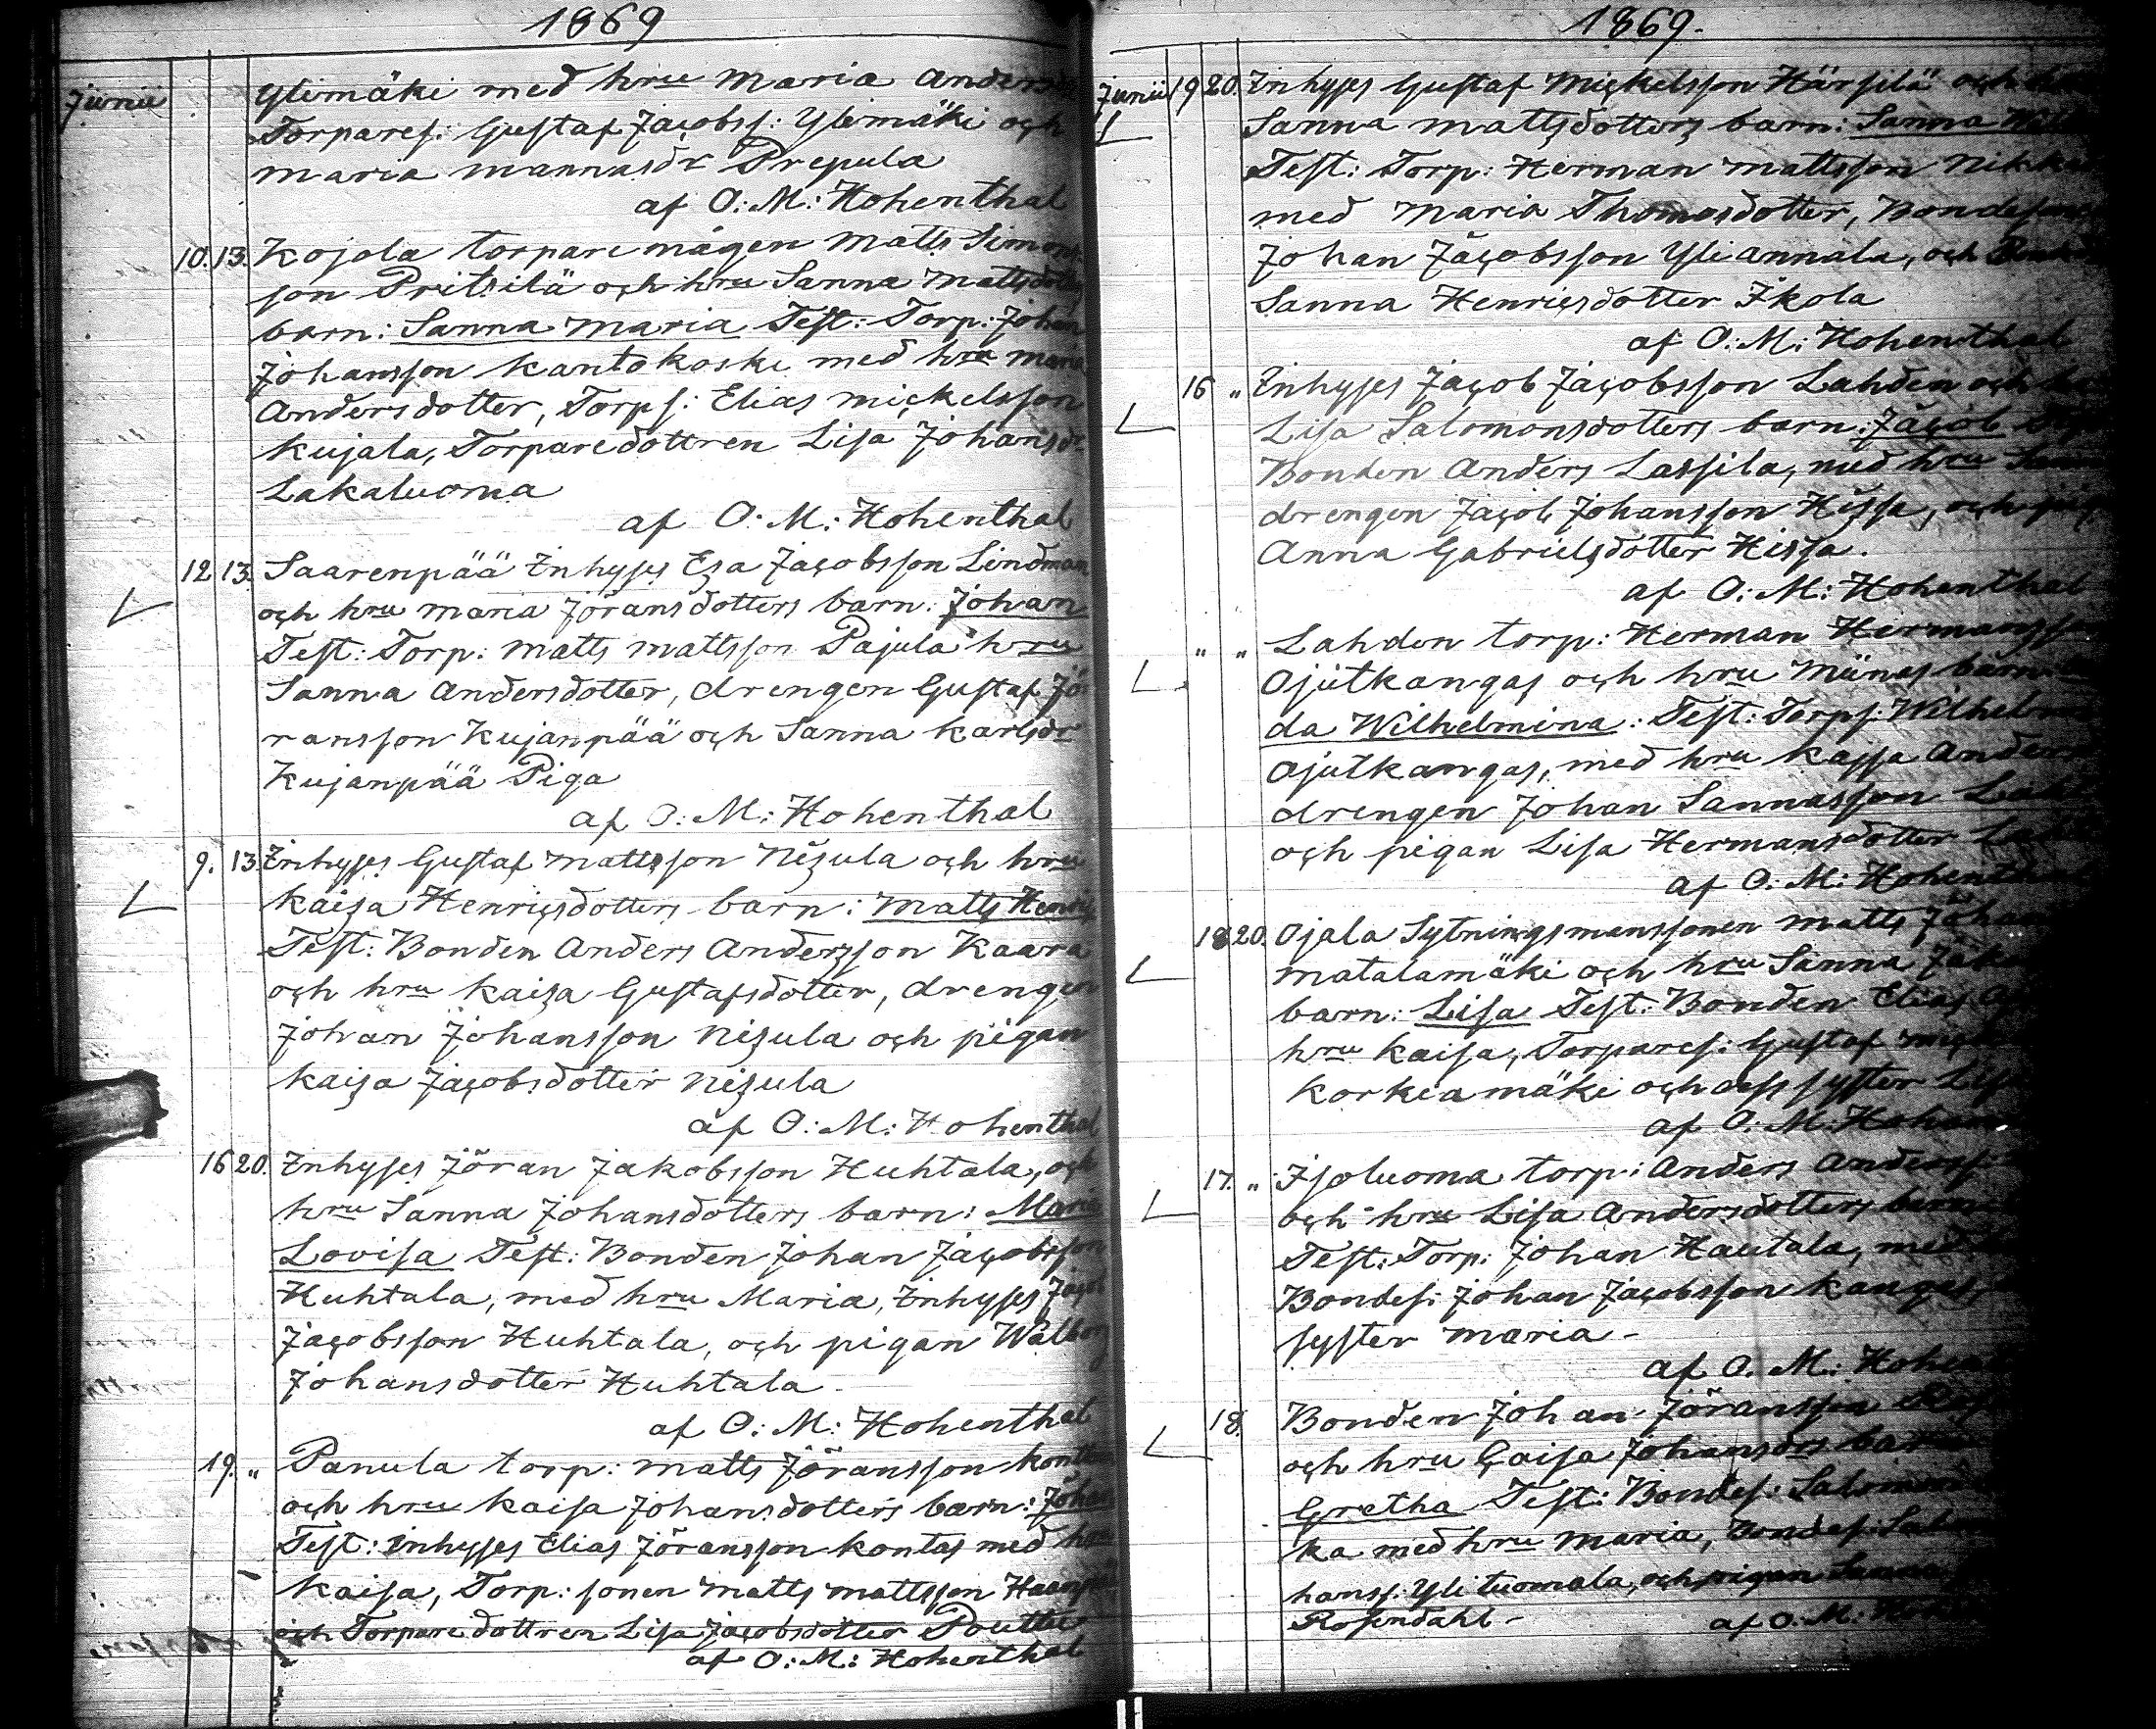 1869
Junii Ylimäki med hru Maria Anders
Torpares: Gustaf Jacobss: Ylimäki och
Maria Mannasdr Prepula
af O: M: Hohenthal
10. 13. Kojola torpare mågen Matts Simons
son Pritsilä och hru Sanna Mattsdotters
barn: Sanna Maria Test: Torp: Johan
Johansson Kantokoski med hru Maria
Andersdotter, Torps: Elias Mickelsson
Kujala, Torparedottren Lisa Johansdr
Lakaluoma
af O: M: Hohenthal
12 13. Saarenpää Inhyses Esa Jacobsson Lindman
och hru Maria Jöransdotters barn: Johan
Test: Torp: Matts Mattsson Pajula hru
Sanna Andersdotter, drengen Gustaf Jö
ransson Kujanpää och Sanna Karlsdr
Kujanpää Piga
af O: M: Hohenthal
9. 13. Inhyses Gustaf Mattsson Nisula och hru
Kaisa Henricsdotters barn: Matts Henric
Test: Bonden Anders Andersson Kaara
och hru Kaisa Gustafsdotter, drengen
Johan Johansson Nisula och pigan
Kaisa Jacobsdotter Nisula
af O: M: Hohenthal
16 20. Inhyses Jöran Jakobsson Huhtala, och
hru Sanna Johansdotters barn: Maria
Lovisa Test: Bonden Johan Jacobsson
Huhtala, med hru Maria, Inhyses Jacob
Jacobsson Huhtala, och pigan Walborg
Johansdotter Huhtala.
af O: M: Hohenthal
19. " Panula torp: Matts Jöransson
och hru Kaisa Johansdotters barn: Johan
Test: Inhyses Elias Jöransson Kontas med hru
Kaisa, Torp: sonen Matts Mattsson
och Torparedottren Lisa Jacobsdotter Pouttu
af O: M: Hohenthal
1869.
Junii 19 20. Inhyses Gustaf Mickelsson Härsilä och
Sanna Mattsdotters barn: Sanna
Test: Torp: Herman Mattsson
med Maria Thomasdotter,
Johan Jacobsson Yliannala, och
Sanna Henricsdotter Ikola
af O: M: Hohenthal
16 " Inhyses Jacob Jacobsson Lahden och
Lisa Salomonsdotters barn: Jacob
Bonden Anders Lassila, med hru
drengen Jacob Johansson Hissa, och
Anna Gabrielsdotter Hissa.
af O: M: Hohenthal
" " Lahden torp: Herman Hermansson
Ojutkangas och hru Miinas barn:
da Wilhelmina: Test: Torps: Wilhelm
Ojutkangas, med hru Kajsa
drengen Johan Sannasson
och pigan Lisa Hermansdotter
af O: M: Hohenthal
18 20. Ojala Sytningsmanssonen Matts
Matalamäki och hru Sanna
barn: Lisa Test: Bonden Elias
hru Kaisa, Torpares: Gustaf
Korkiamäki och dess syster
af O: M:
17. " Isoluoma torp: Anders
och hru Lisa Andersdotters barn
Test: Torp: Johan Hautala, med
Bondes: Johan Jacobsson Kangas,
syster Maria -
af O. M:
18. Bonden Johan Jöransson
och hru Caisa Johansdrs barn
Gretha Test: Bondes:
ka med hru Maria, Bondes:
hanss: Ylituomala, och pigan Sanna
Rosendahl - af O: M: